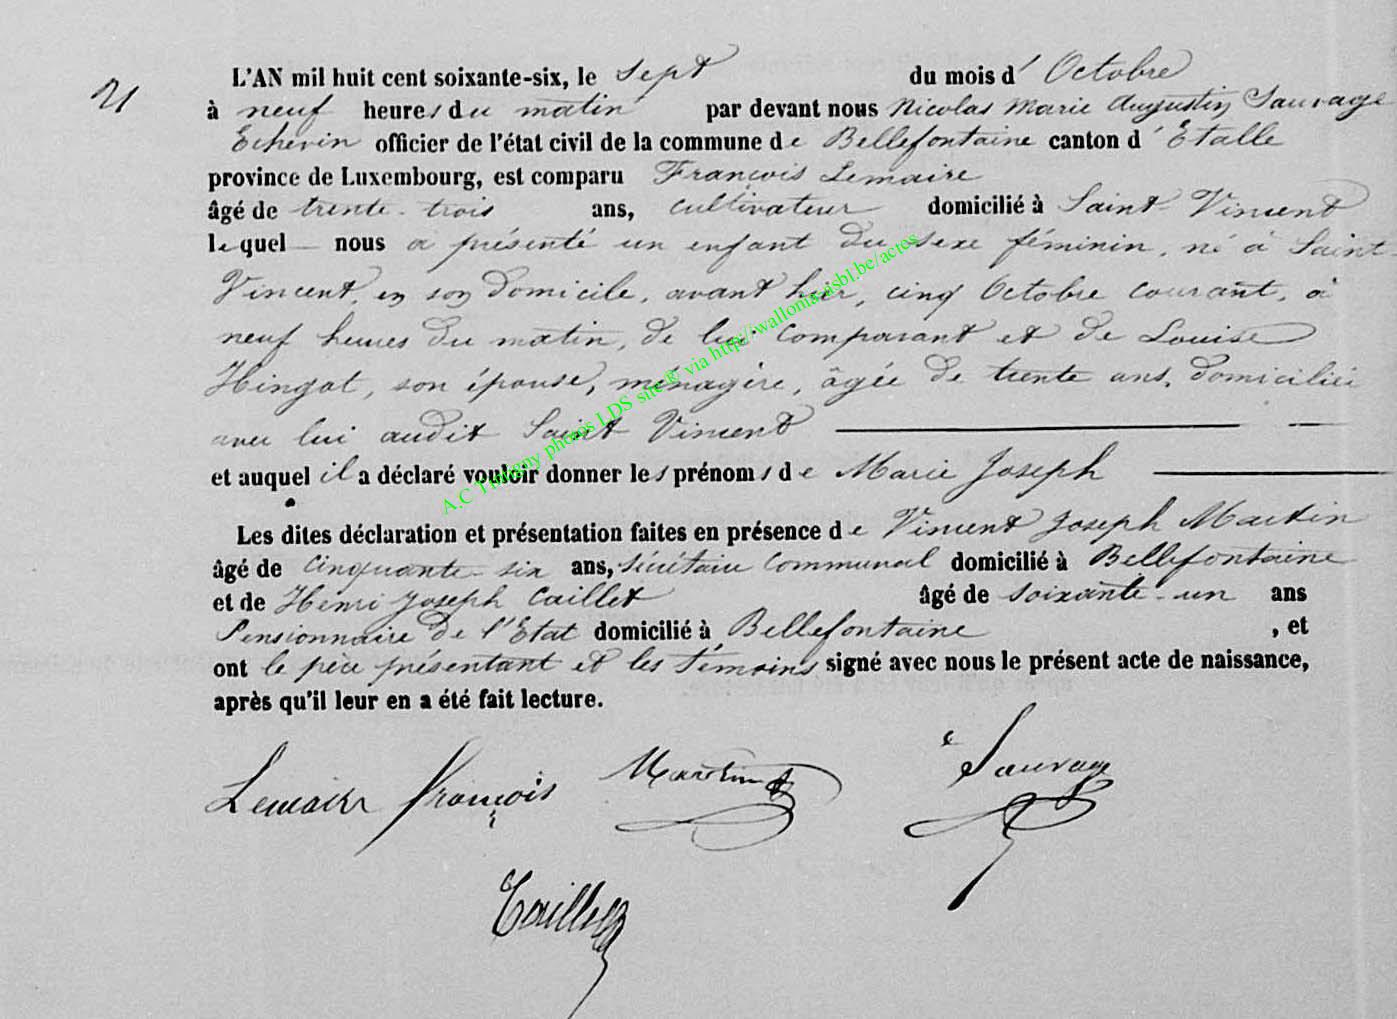 21
L'AN mil huit cent soixante-six, le sept du mois d' Octobre
à neuf heures du matin par devant nous Nicolas Marie Augustin Sauvage
Echevin officier de l'état civil de la commune de Bellefontaine canton d' Etalle
province de Luxembourg, est comparu François Lemaire
âgé de trente-trois ans, cultivateur domicilié à Saint-Vincent
lequel nous a présenté un enfant du sexe féminin, né à Saint-
Vincent, en son domicile, avant hier, cinq Octobre courant, à
neuf heures du matin, de lui comparant et de Louise
Hingot, son épouse, ménagère, âgée de trente ans, domiciliée
avec lui audit Saint Vincent
et auquel il a déclaré vouloir donner les prénoms de Marie Joseph
Les dites déclaration et présentation faites en présence de Vincent Joseph Martin
âgé de Cinquante-six ans, Sécrétaire Communal domicilié à Bellefontaine
et de Henri Joseph Caillet âgé de soixante-un ans
Pensionnaire de l'Etat domicilié à Bellefontaine , et
ont le père présentant et les témoins signé avec nous le présent acte de naissance,
après qu'il leur en a été fait lecture.
Lemaire François Martin Sauvage
Caillet
A.C Tintigny photos LDS site© via http://wallonia-asbl.be/actes